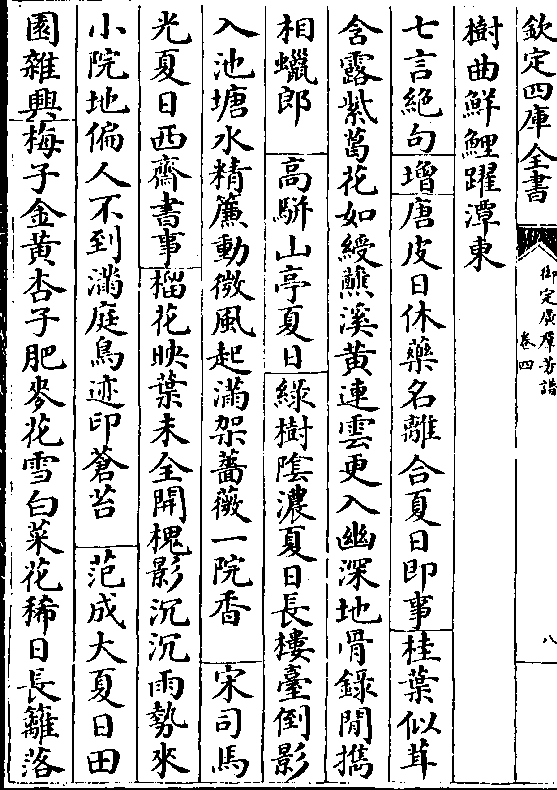 欽定四庫全書
御定廣羣芳譜
卷四
八
樹曲鮮鯉躍潭東
七言絶句增唐皮日休藥名離合夏日即事桂葉似茸
含露紫葛花如綬蘸溪黄連雲更入幽深地骨錄閒攜
相蠟郎 高駢山亭夏日綠樹陰濃夏日長樓臺倒影
入池塘水精簾動微風起滿架薔薇一院香 宋司馬
光夏日西齋書事榴花映葉未全開槐影沉沉雨勢來
小院地偏人不到滿庭鳥迹印蒼苔 范成大夏日田
園雜興梅子金黄杏子肥麥花雪白菜花稀日長籬落